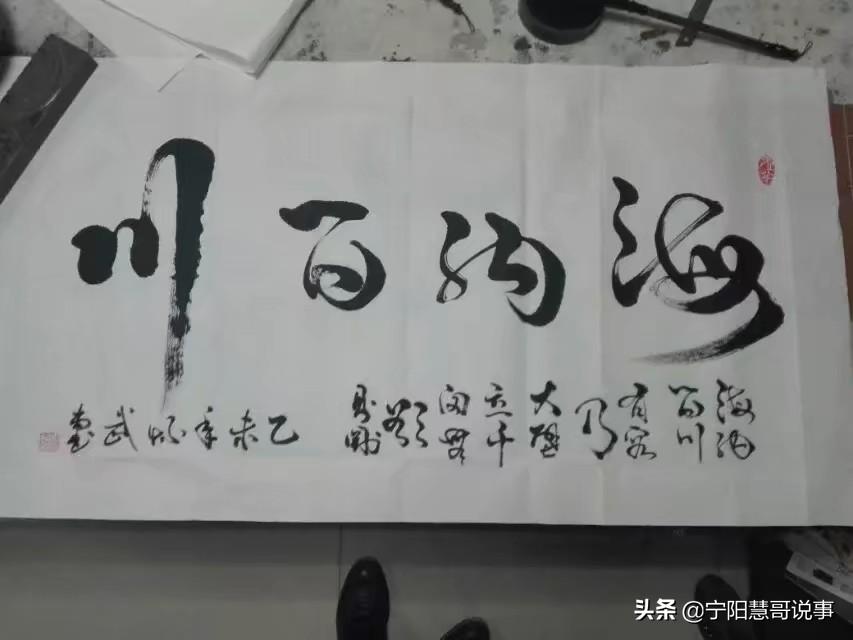 海纳百川
海纳
百川
有容
乃
大壁
立千
欲
则刚
乙未年武
头条 @宁阳慧哥说事